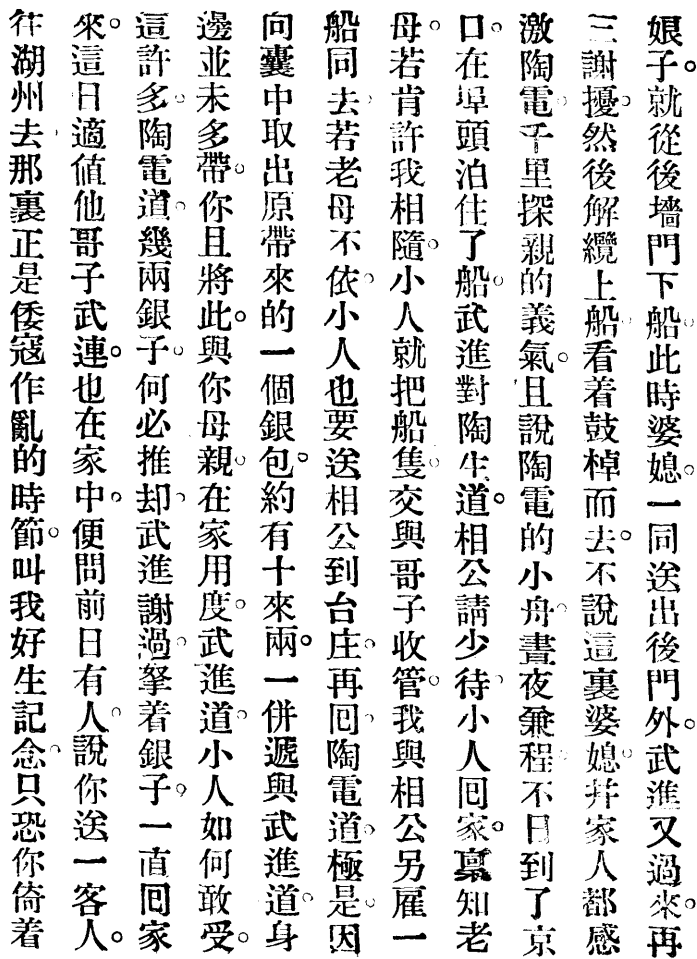 娘子。就從後墻門下船。此時婆媳。一同送出後門外。武進又過來。再
三謝擾。然後解纜上船。看着鼓棹而去。不說這裏婆媳。幷家人都感
激陶電。千里探親的義氣。且說陶電的小舟。晝夜兼程。不日到了京
口。在埠頭泊住了船。武進對陶生道。相公請少待。小人囘家。稟知老
母。若肯許我相隨。小人就把船隻。交與哥子收管。我與相公另雇一
船同去。若老母不依。小人也要送相公到台庄。再囘。陶電道。極是。因
向囊中取出原帶來的一個銀包。約有十來兩。一併遞與武進道。身
邊並未多帶。你且將此。與你母親。在家用度。武進道。小人如何敢受。
這許多。陶電道。幾兩銀子。何必推却。武進謝過。拏着銀子。一直囘家
來。這日適値他哥子武連。也在家中。便問前日有人。說你送一客人。
徃湖州去。那裏正是倭寇作亂的時節。叫我好生記念。只恐你倚着